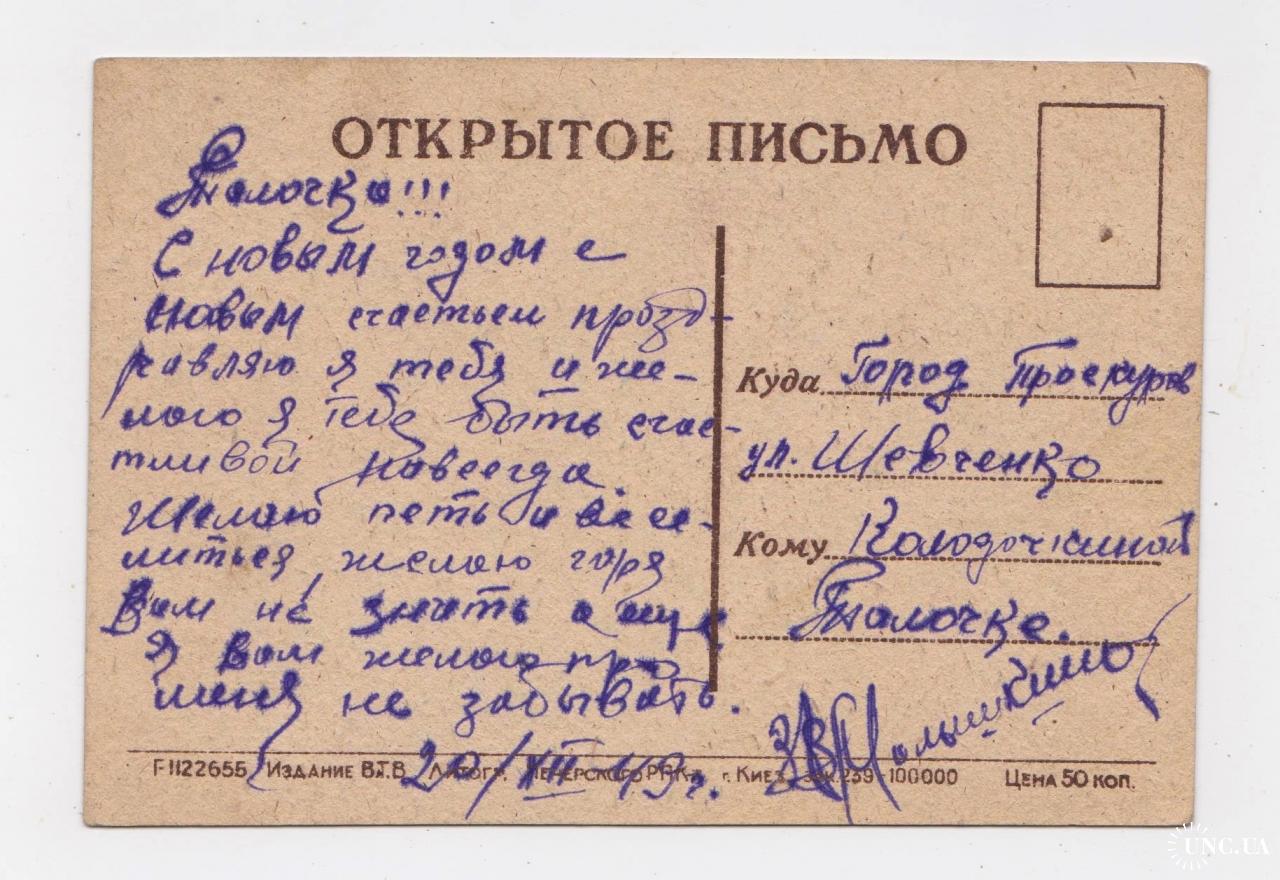 ОТКРЫТОЕ ПИСЬМО
Талочка!!!
С новым годом с
новым счастьем прозд-
равляю я тебя и же-
лаю я тебе быть счас-
тливой навсегда.
Желаю петь и весе-
литься, желаю горя
Вам не знать а еще
я Вам желаю про
меня не забывать.
20/XII-49г.
Куда Город Проскуров
ул. Шевченко
Кому Колодочкиной
Талочке.
Г-1122655 Издание В.Т.В. Печерского г. Киев 239-100000 Цена 50 коп.
UNC.UA